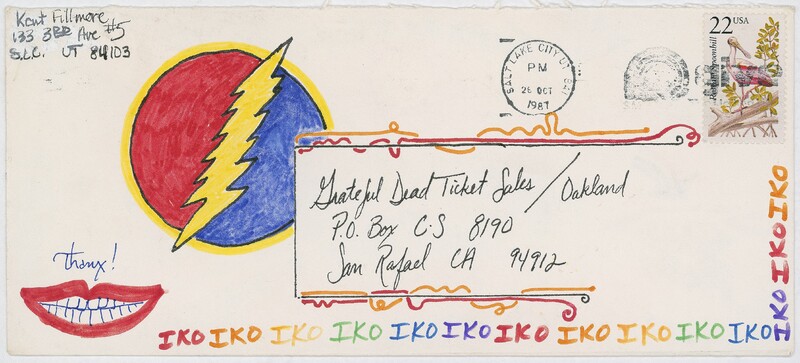 Kent Fillmore
133 3RD Ave #5
S.L.C. UT 84103
SALT LAKE CITY UT
PM
26 OCT
1987
22 USA
Roseate Spoonbill
Grateful Dead Ticket Sales / Oakland
P.O. Box C-S 8190
San Rafael CA 94912
Thanx!
IKO IKO IKO IKO IKO IKO IKO IKO IKO IKO IKO
IKO IKO IKO IKO